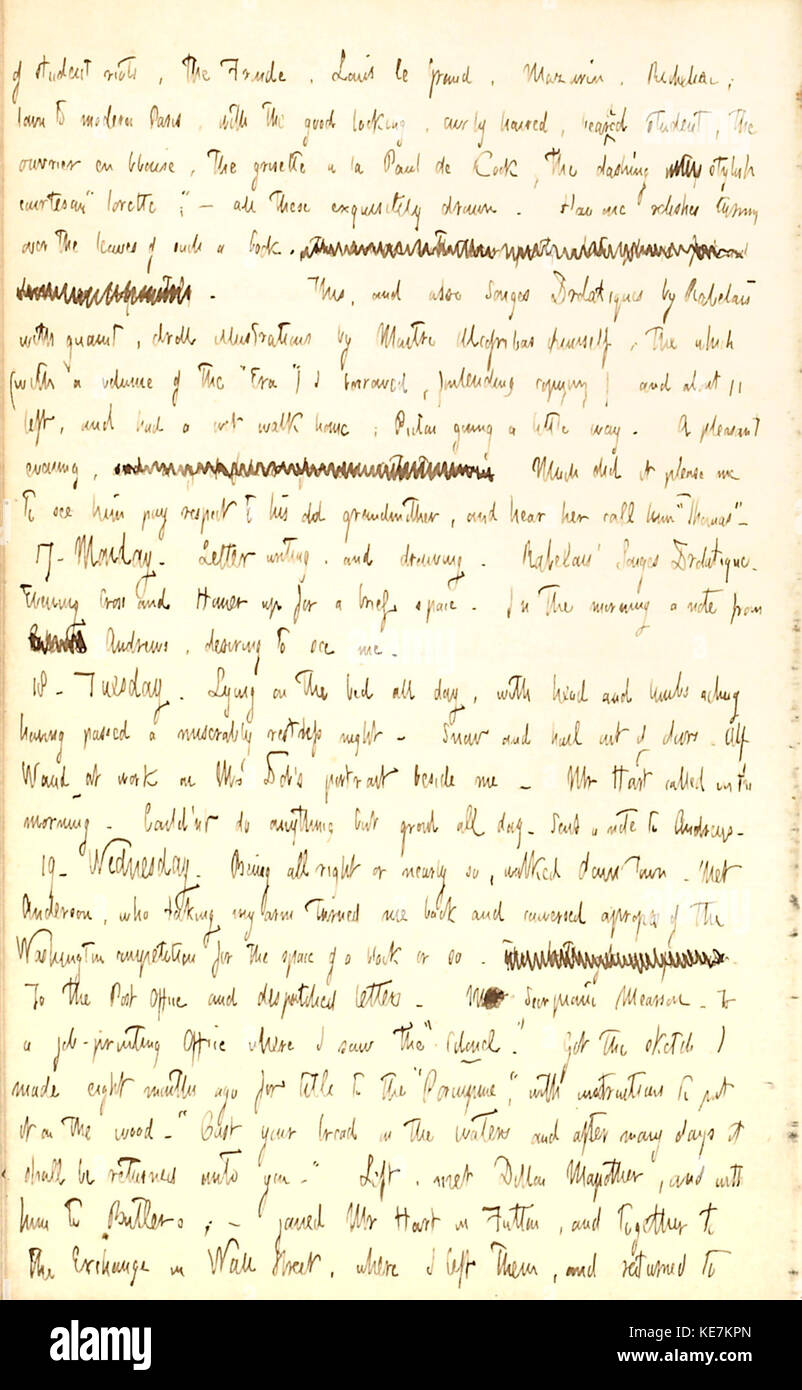 of student riots, the Fronde, Louis le Grand, Mazarin, Richelieu;
down to modern Paris, with the good looking, curly haired, bearded student, the
ouvrier en blouse, the grisette a la Paul de Kock, the dashing stylish
courtesan "lorette"; — all these exquisitely drawn. How one relishes turning
over the leaves of such a book.
This, and also Songes Drolatiques by Rabelais
with quaint, droll illustrations by Maitre Alcofribas himself, the which
(with a volume of the "Era") I borrowed, (intending copying) and about 11
left, and had a wet walk home; Picton going a little way. A pleasant
evening, Much did it please me
to see him pay respect to his old grandmother, and hear her call him "Thomas" —
17 — Monday. Letter writing, and drawing. Rabelais' Songes Drolatique.
Evening Cross and Hanner up for a brief space. In the morning a note from
Andrews, desiring to see me.
18 — Tuesday. Lying on the bed all day, with head and limbs aching
having passed a miserably restless night — Snow and hail out o' doors. Alf
Waud at work on Mrs Dob's portrait beside me — Mr Hart called in the
morning — Could'nt do anything but growl all day — Sent a note to Andrews —
19 — Wednesday. Being all right or nearly so, walked down town — Met
Anderson, who taking my arm turned me back and conversed apropos of the
Washington competition for the space of a block or so.
To the Post Office and despatched letters — Mearson — To
a job-printing Office where I saw the "Colonel." Got the sketch I
made eight months ago for title to the "Porcupine", with instructions to put
it on the wood — "Cast your bread on the waters and after many days it
shall be returned unto you —" Left, met Dillon Mapother, and with
him to Butlers; — joined Mr Hart in Fulton, and together to
the Exchange in Wall Street, where I left them, and returned to
alamy
alamy stock photo
KE7KPN
www.alamy.com